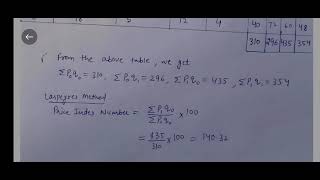 16 5 12 4 40 72 60 48
310 296 435 354
from the above table, we get
∑P₀q₀ = 310, ∑P₀q₁ = 296, ∑P₁q₀ = 435, ∑P₁q₁ = 354
Laspeyres Method
Price Index Number = ∑P₁q₀ / ∑P₀q₀ × 100
= 435/310 × 100 = 140.32